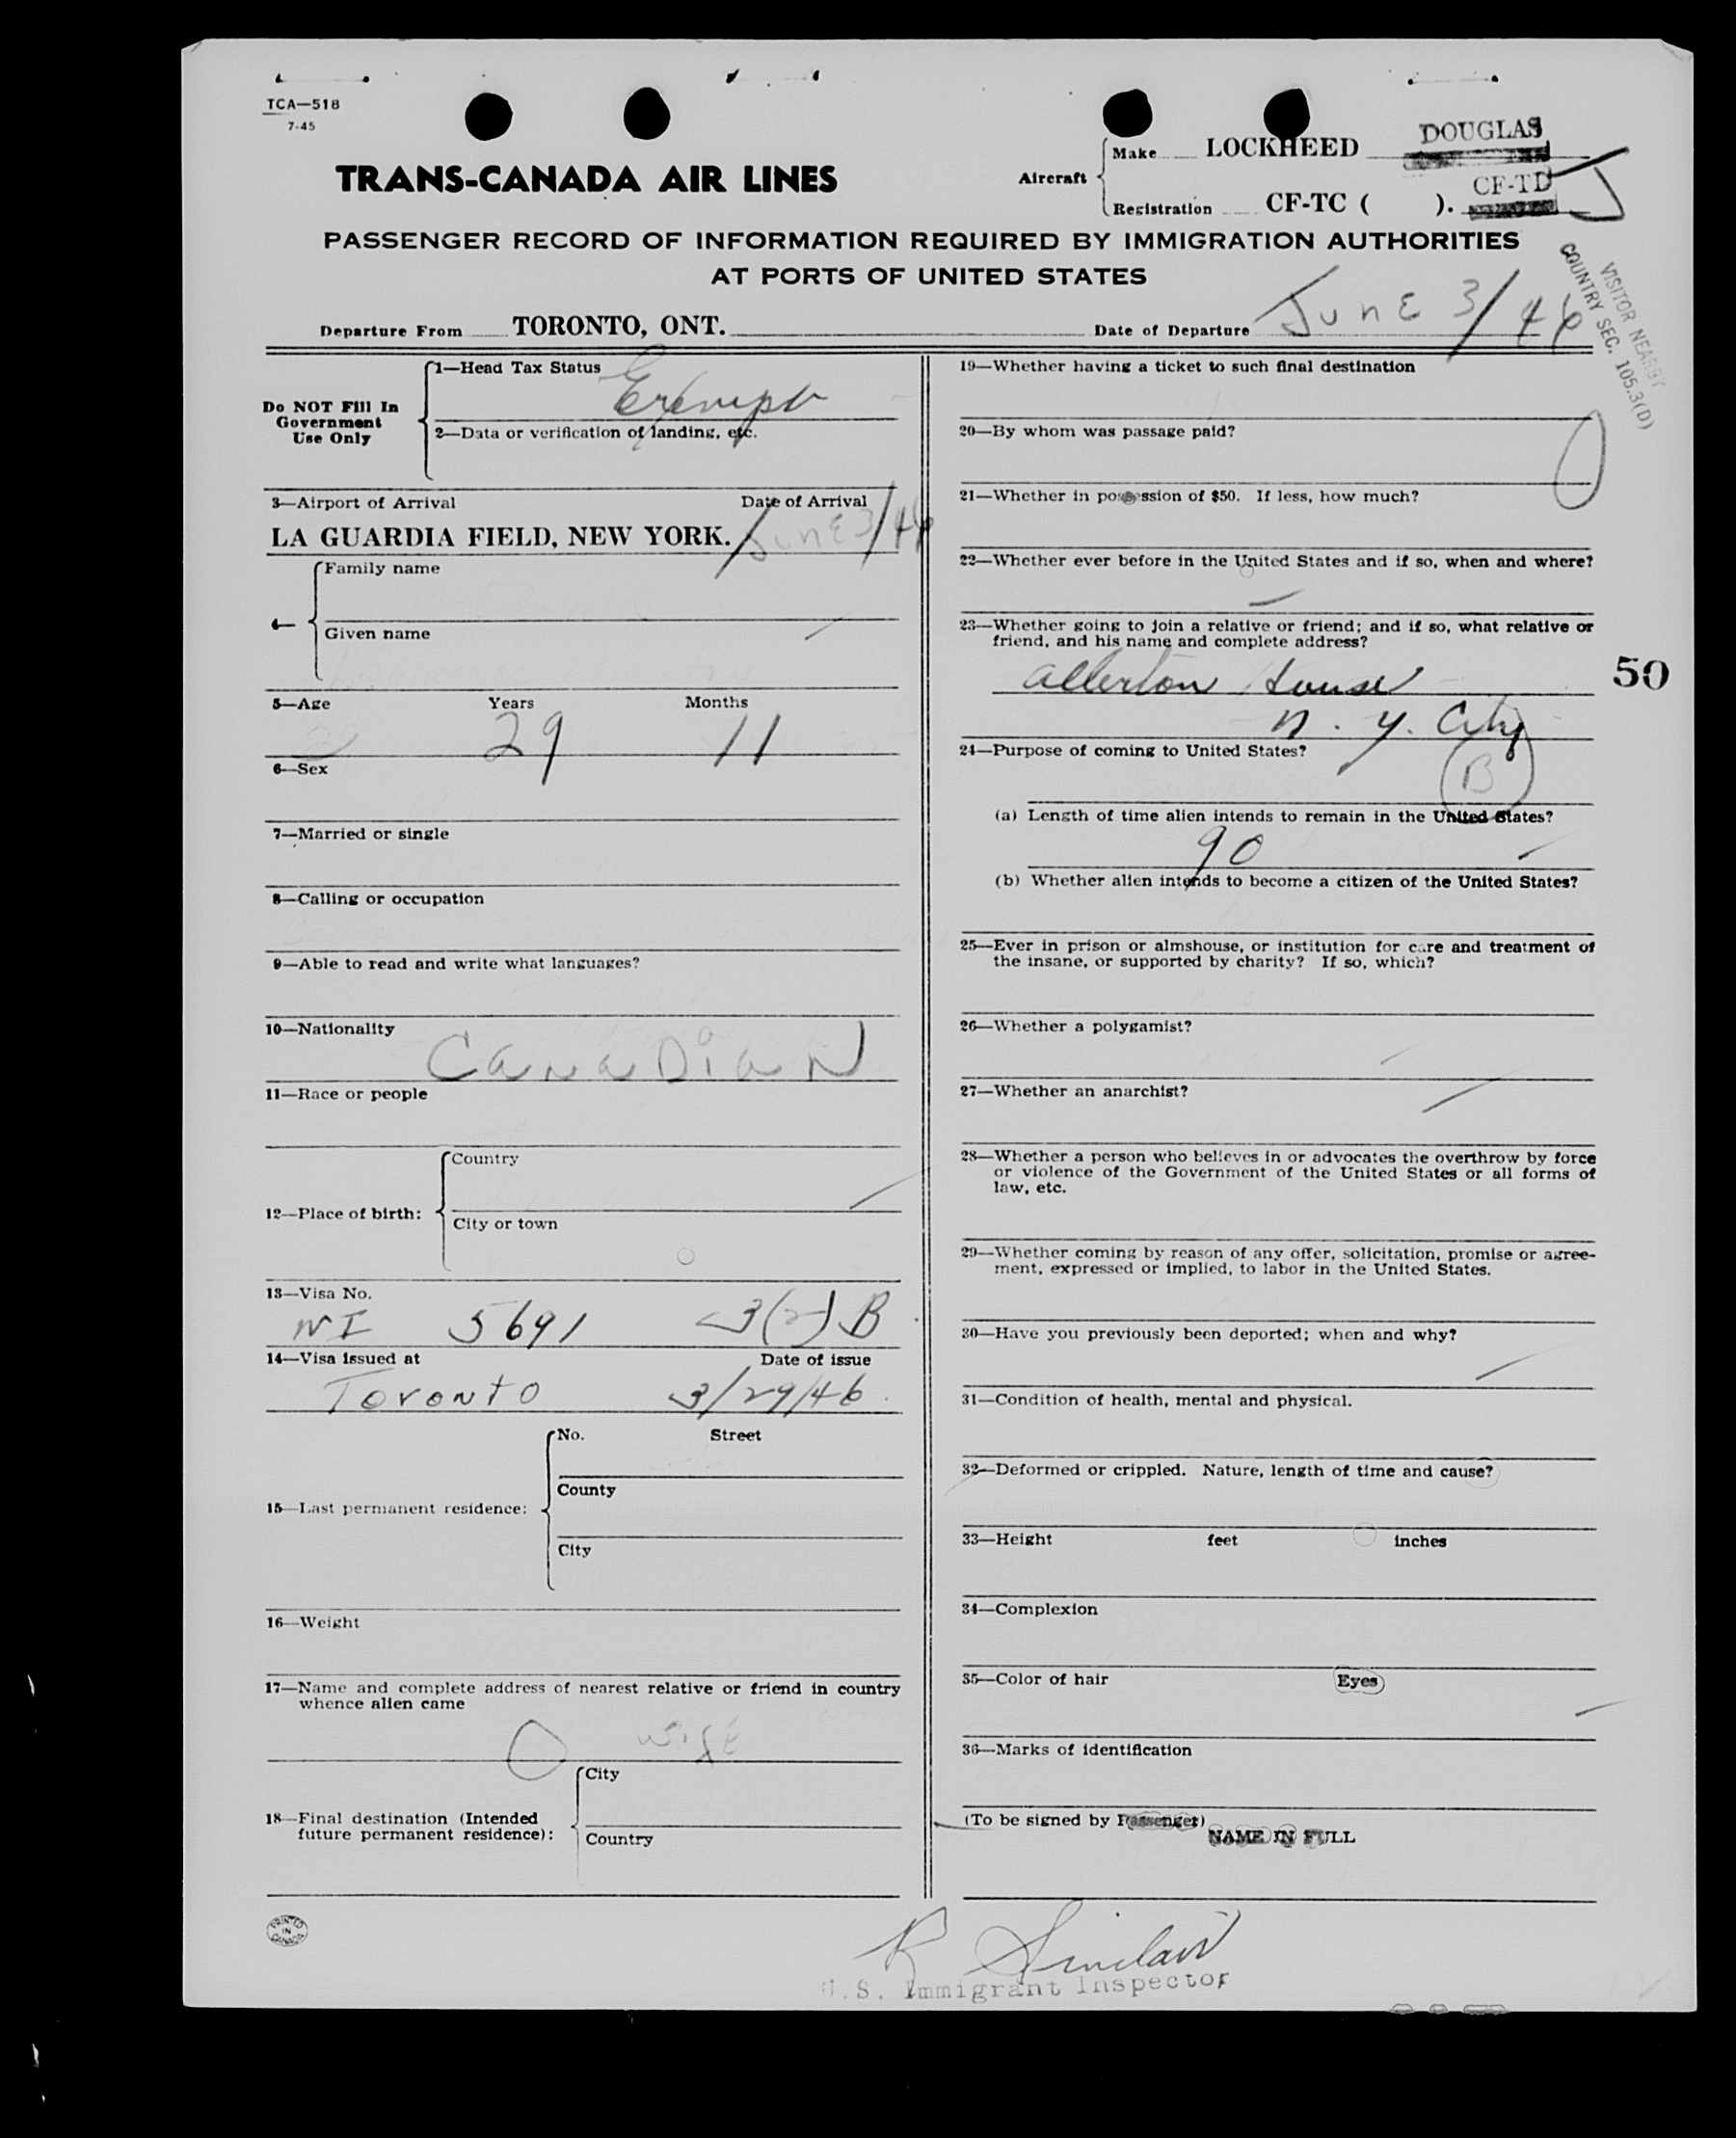 TCA—518
7-45
TRANS-CANADA AIR LINES
Aircraft
Make LOCKHEED DOUGLAS
Registration CF-TC ( ). CF-TD J
PASSENGER RECORD OF INFORMATION REQUIRED BY IMMIGRATION AUTHORITIES
AT PORTS OF UNITED STATES
VISITOR NEARBY
COUNTRY SEC. 105.3(D)
Departure From TORONTO, ONT. Date of Departure June 3/46
Do NOT Fill In
Government
Use Only
1—Head Tax Status
Exempt
2—Data or verification of landing, etc.
3—Airport of Arrival Date of Arrival
LA GUARDIA FIELD, NEW YORK. June 3/46
4—
Family name
Given name
5—Age Years Months
29 11
6—Sex
7—Married or single
8—Calling or occupation
9—Able to read and write what languages?
10—Nationality
CanaDiaN
11—Race or people
12—Place of birth:
Country
City or town
13—Visa No.
NI 5691 3(2) B
14—Visa issued at Date of issue
Toronto 3/29/46
15—Last permanent residence:
No. Street
County
City
16—Weight
17—Name and complete address of nearest relative or friend in country
whence alien came
wife
18—Final destination (Intended
future permanent residence):
City
Country
PRINTED
IN
CANADA
19—Whether having a ticket to such final destination
20—By whom was passage paid?
21—Whether in possession of $50. If less, how much?
22—Whether ever before in the United States and if so, when and where?
23—Whether going to join a relative or friend; and if so, what relative or
friend, and his name and complete address?
Allerton House
N. Y. City
50
24—Purpose of coming to United States?
B
(a) Length of time alien intends to remain in the United States?
90
(b) Whether alien intends to become a citizen of the United States?
25—Ever in prison or almshouse, or institution for care and treatment of
the insane, or supported by charity? If so, which?
26—Whether a polygamist?
27—Whether an anarchist?
28—Whether a person who believes in or advocates the overthrow by force
or violence of the Government of the United States or all forms of
law, etc.
29—Whether coming by reason of any offer, solicitation, promise or agree-
ment, expressed or implied, to labor in the United States.
30—Have you previously been deported; when and why?
31—Condition of health, mental and physical.
32—Deformed or crippled. Nature, length of time and cause?
33—Height feet inches
34—Complexion
35—Color of hair Eyes
36—Marks of identification
(To be signed by Passenger)
NAME IN FULL
R Sinclair
U.S. Immigrant Inspector